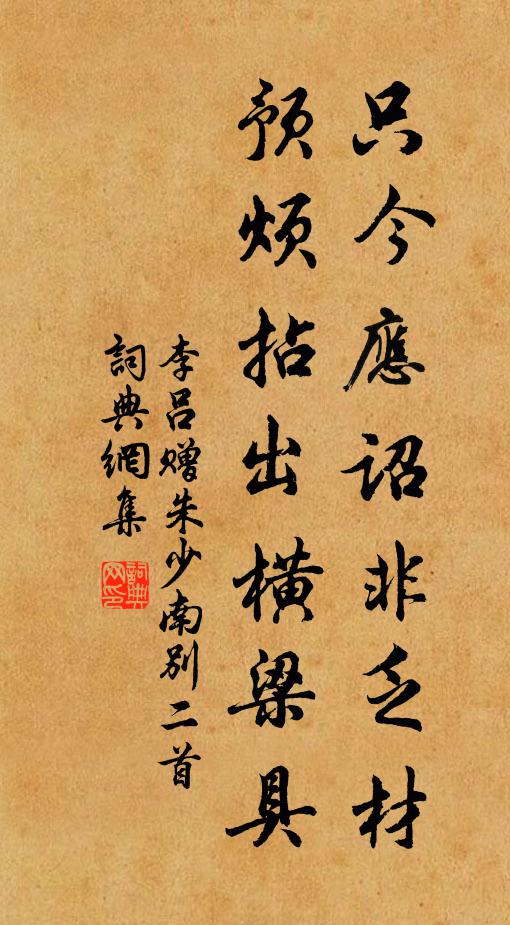 只今應詔非乏材
預煩拈出橫梁具
李呂贈朱少南別二首
詞典網集
詞典網印